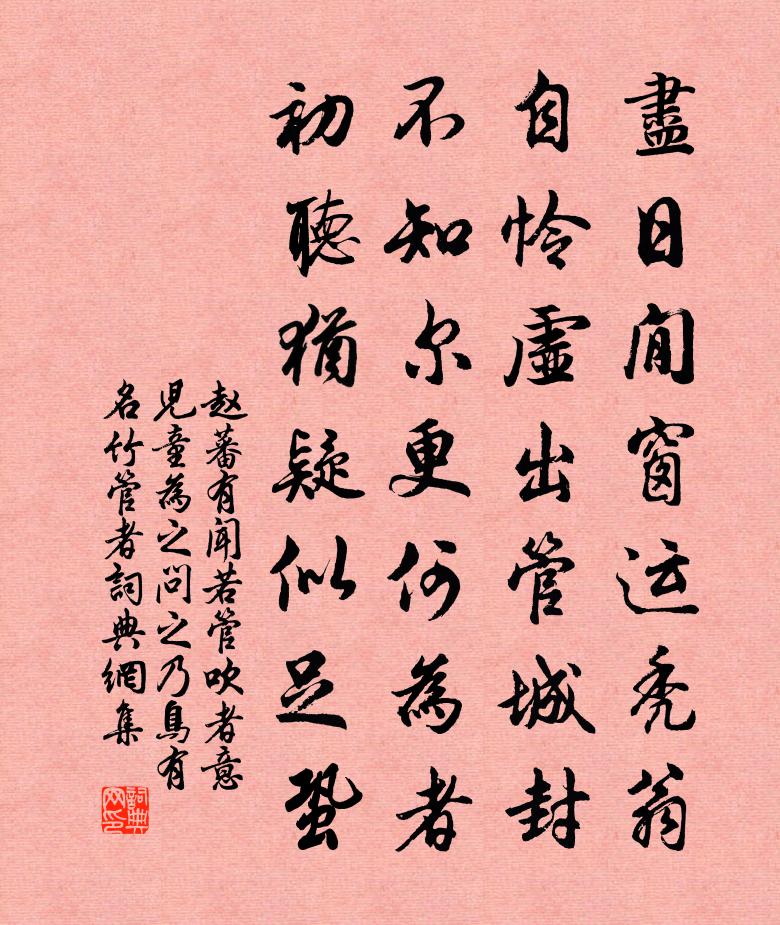 盡日閒窗运秃翁
自怜虛出管城封
不知尔更何為者
初聽猶疑似足蛩
赵蕃有聞若管吹者意
児童為之问之乃鳥有
名竹管者詞典網集
詞典网印